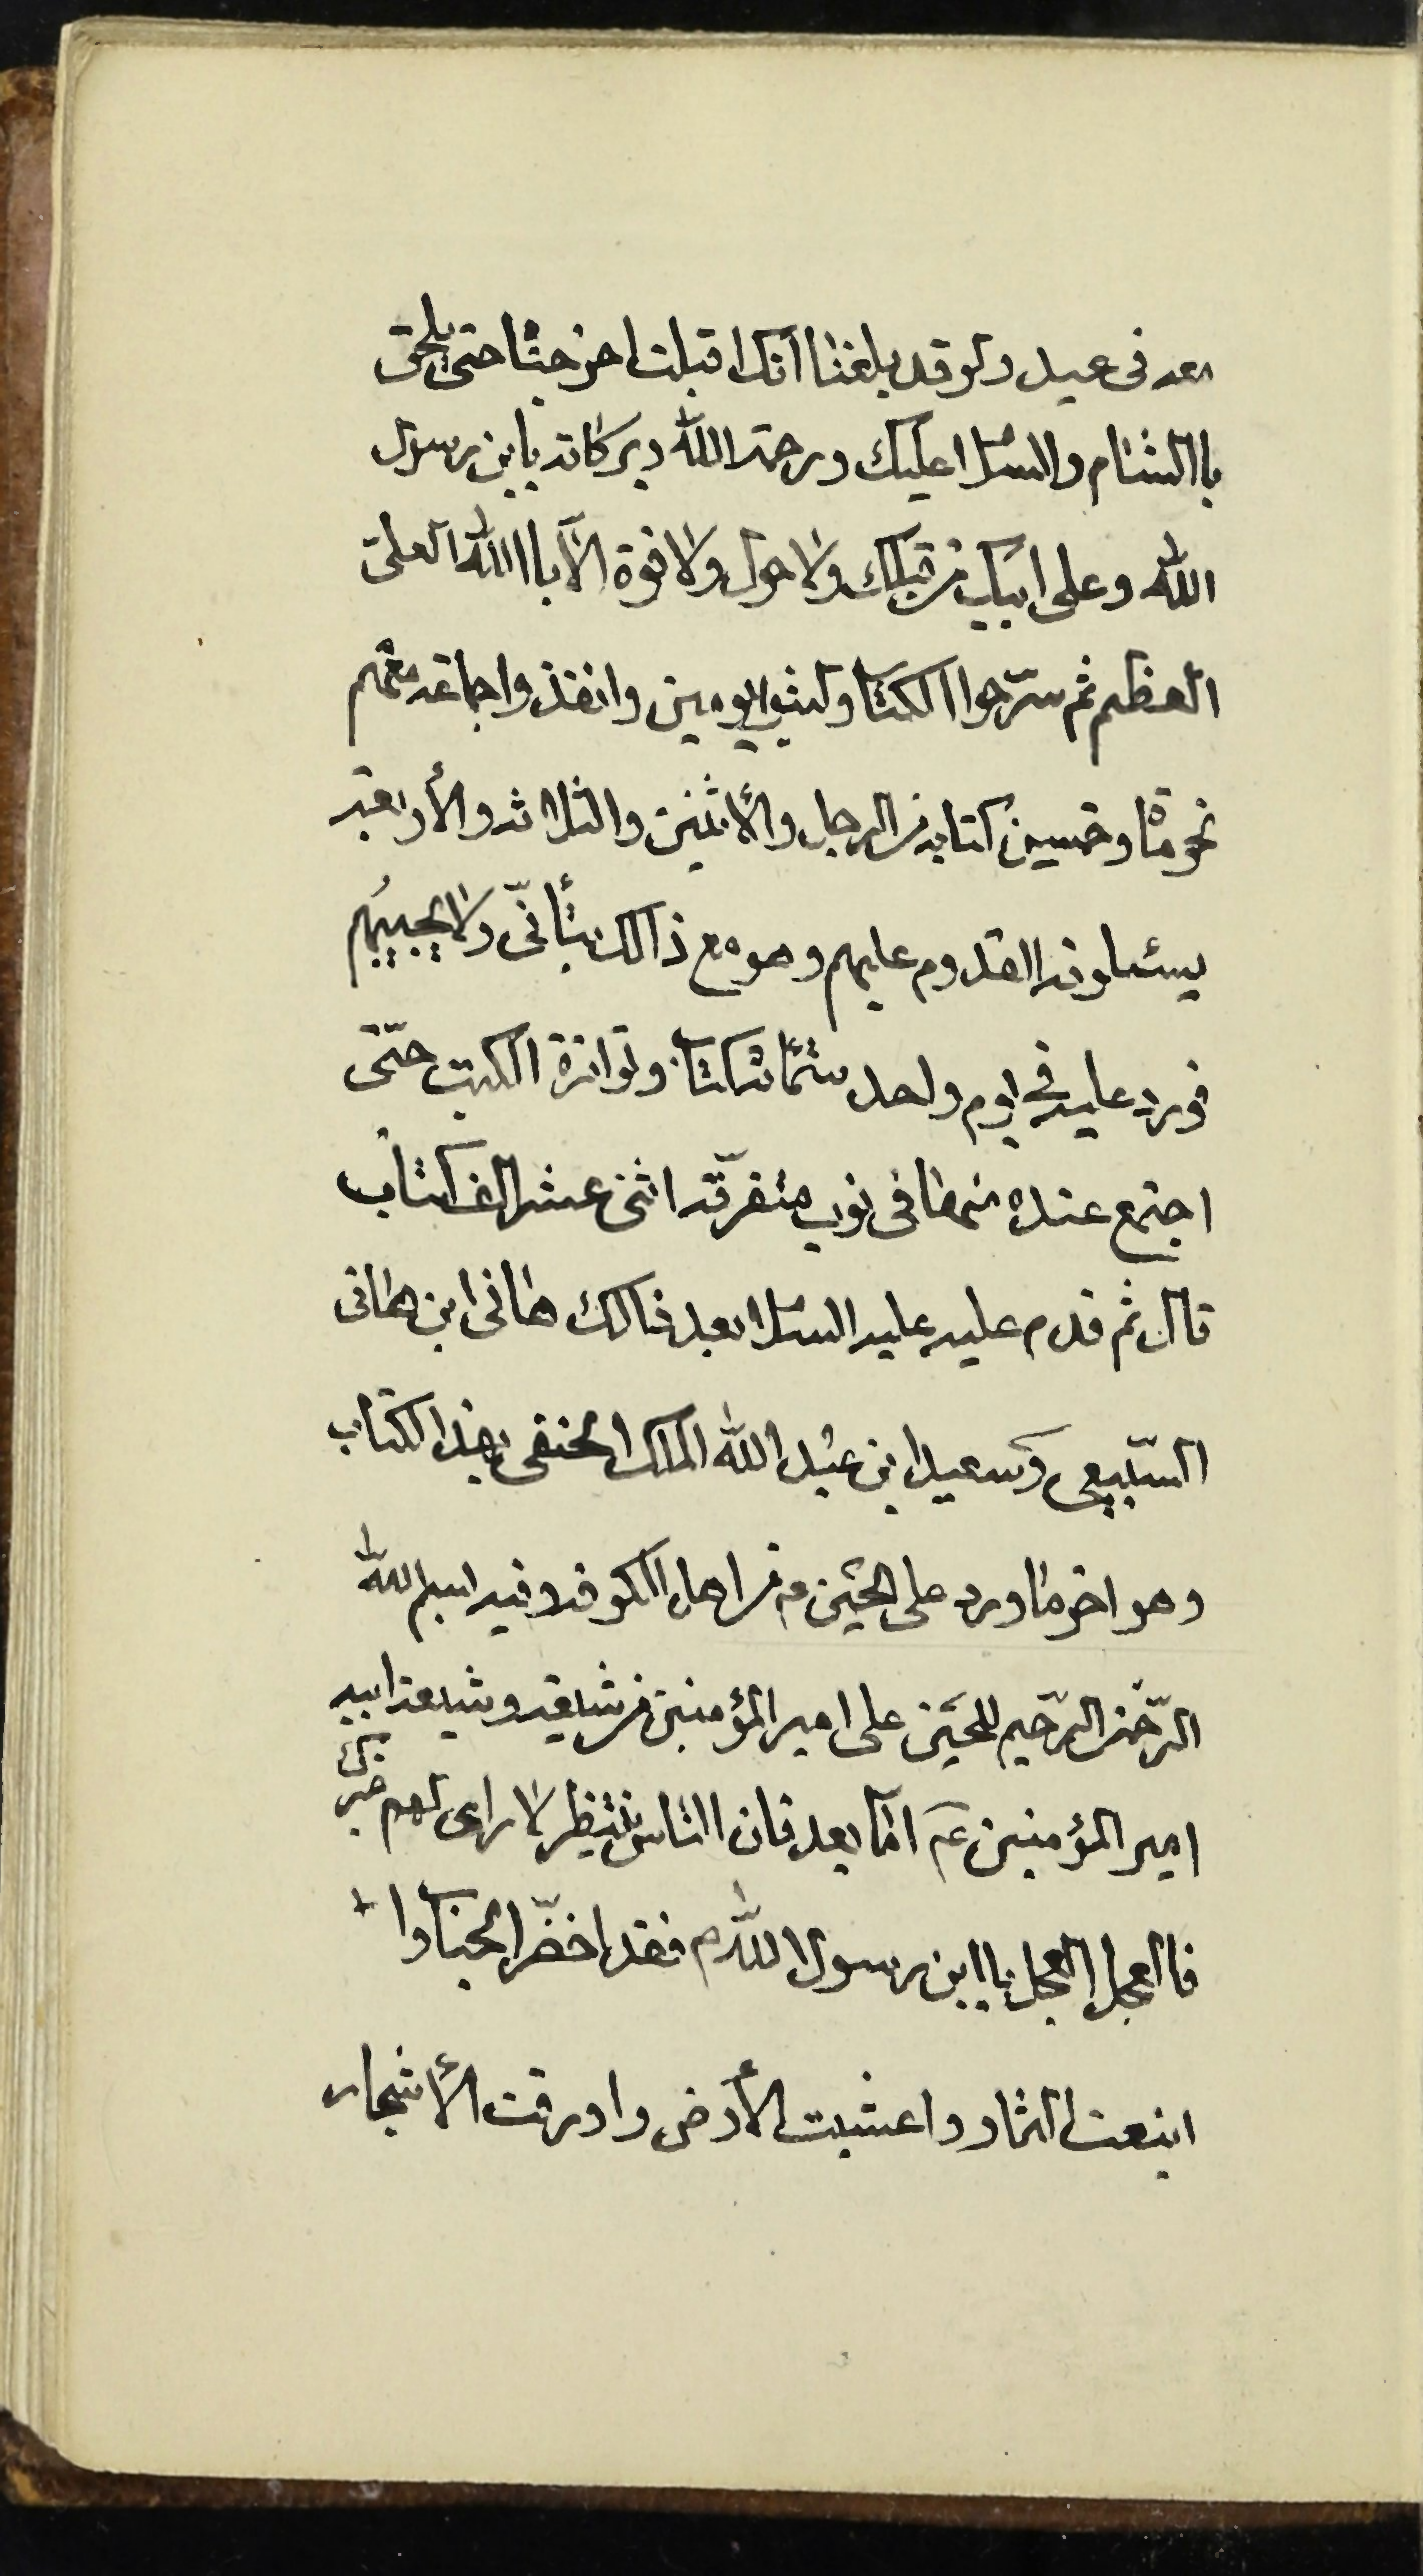 معه فى عيد ولو قد بلغنا انك اقبلت اخرجنا حتى يلحق
باالشام والسلا عليك ورحمة الله وبركاته يابن رسول
الله وعلى ابيك من قبلك ولا حول ولا قوة الّا باالله العلىّ
العظيم ثم سرّحوا الكتا ولبثو اليومين وانفذوا جماعه معهم
نحو مأة وخمسين كتابه من الرجل والأثنين والثلاثه والأربعة
يسئلونه القدوم عليهم وهو مع ذالك يتأنّى ولا يجيبهم
فورد عليه فى يوم واحد ستمائة كتاب وتواترة الكتب حتّى
اجتمع عنده منها فى نوب متفرّقه اثنى عشر الف كتاب
قال ثم قدم عليه عليه السلا بعد ذالك هانى ابن هانى
السّبيعى وسعيد ابن عبد الله الملك الحنفى بهذا الكتاب
وهو اخر ما ورد على الحسين ع من اهل الكوفه وفيه بسم الله
الرّحمن الرّحيم للحسين على امير المؤمنين من شيعته وشيعة ابيه
امير المؤمنين ع امّا بعد فان الناس ينتظر لا راى لهم غيرك
فاالعجل العجل ياابن رسول الله م فقد اخضّر الجناب وا
اينعت الثمار واعشبت الأرض واورقت الأشجار